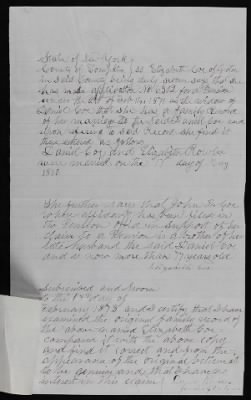 State of New York
County of Tompkins } ss Elizabeth Coy of
in said County being duly sworn says that she
has made application No 6312 for Pension
under the act of Feb 14th 1871 as the widow of
Daniel Coy that she has a family record
of her marriage to said Daniel Coy and
upon refering to said Record she find it
then entered as follows
Daniel Coy and Elizabeth
were married on the day of May
1812
She further says that John D. Coy
whose affidavit has been filed in
the Pension Office in support of her
claim for a Pension is a brother of her
late husband the said Daniel Coy
and is now more than 77 years old
Elizabeth Coy
Subscribed and sworn
to this day of
February 1873 and I certify that I have
examined the original family record of
the above named Elizabeth Coy
compared it with the above copy
and find it correct and from the
appearance of the original believe it
to be genuine and that I have no
interest in this claim